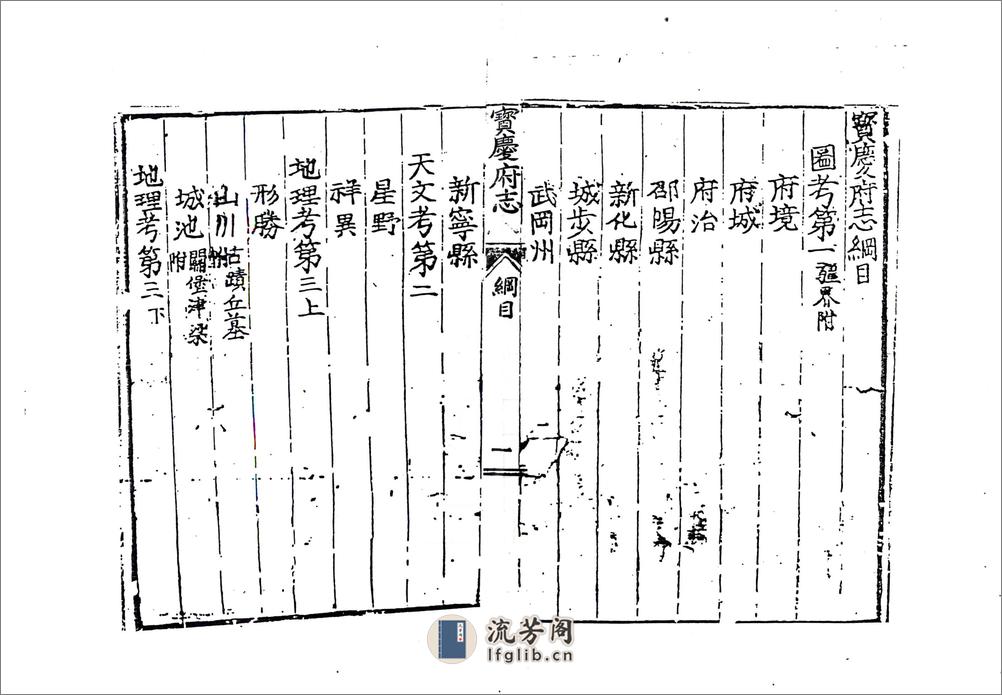 寳慶府志綱目
圖考第一 疆界附
府境
府城
府治
邵陽縣
新化縣
城步縣
武岡州
寳慶府志 綱目 一
新寧縣
天文考第二
星野
祥異
地理考第三上
形勝
山川 古蹟丘墓附
城池 關堡津梁附
地理考第三下
流芳阁
lfglib.cn